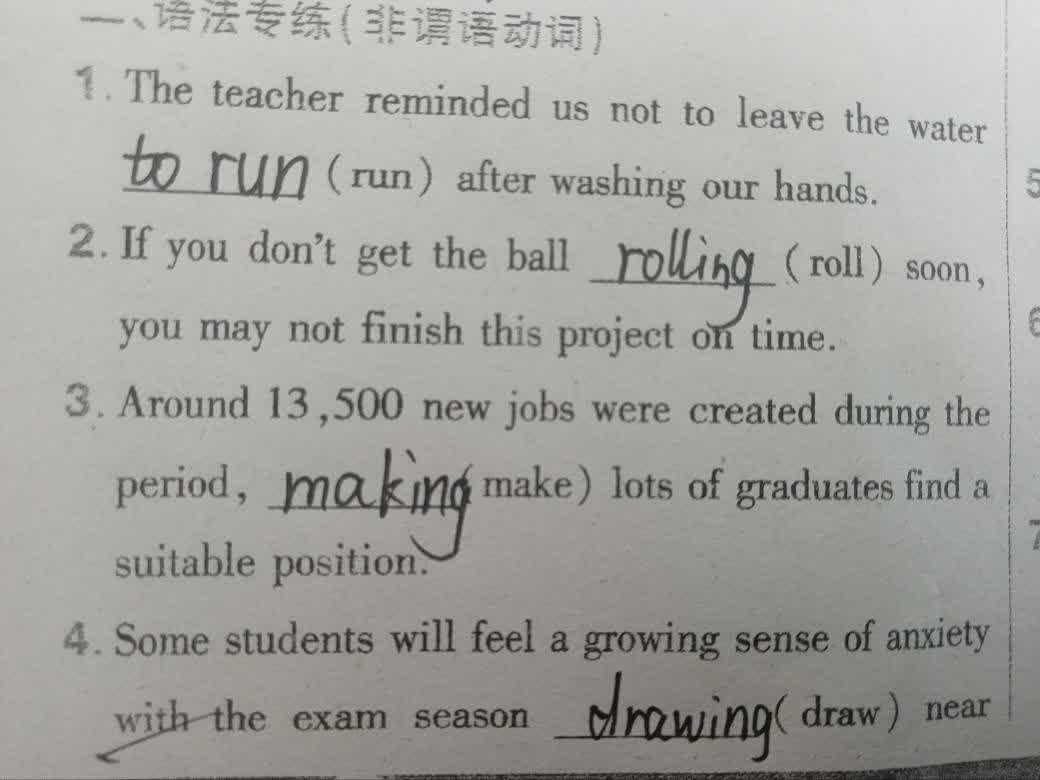 一、语法专练(非谓语动词)
1. The teacher reminded us not to leave the water
to run (run) after washing our hands.
2. If you don't get the ball rolling (roll) soon,
you may not finish this project on time.
3. Around 13,500 new jobs were created during the
period, making (make) lots of graduates find a
suitable position.
4. Some students will feel a growing sense of anxiety
with the exam season drawing (draw) near
5
6
7